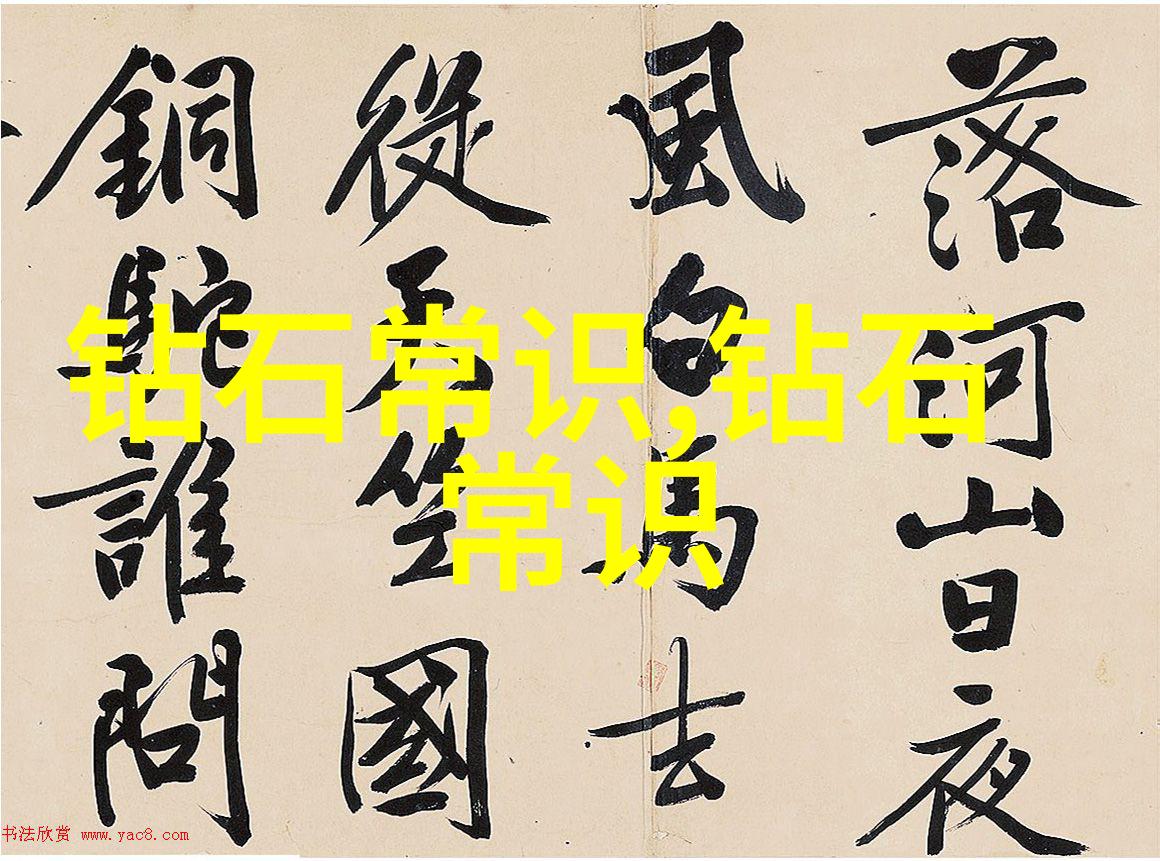 落河山日夜
風白馬去
從天竺國
銅駝誰問
钻石常识,钻石
常识
书法欣赏 www.yac8.com